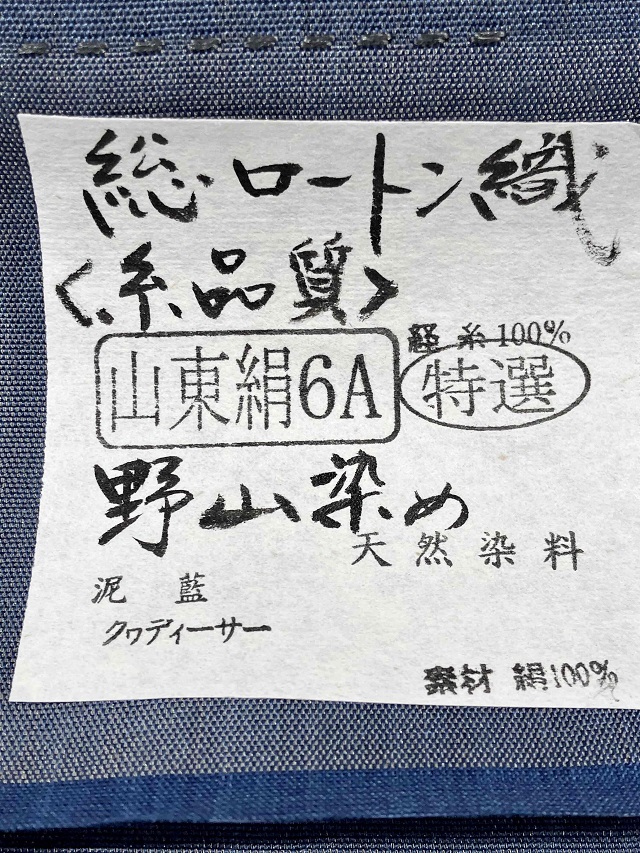 総ロートン織
<糸品質>
経糸100%
山東絹6A 特選
野山染め
天然染料
泥 藍
クヮディーサー
素材 絹100%